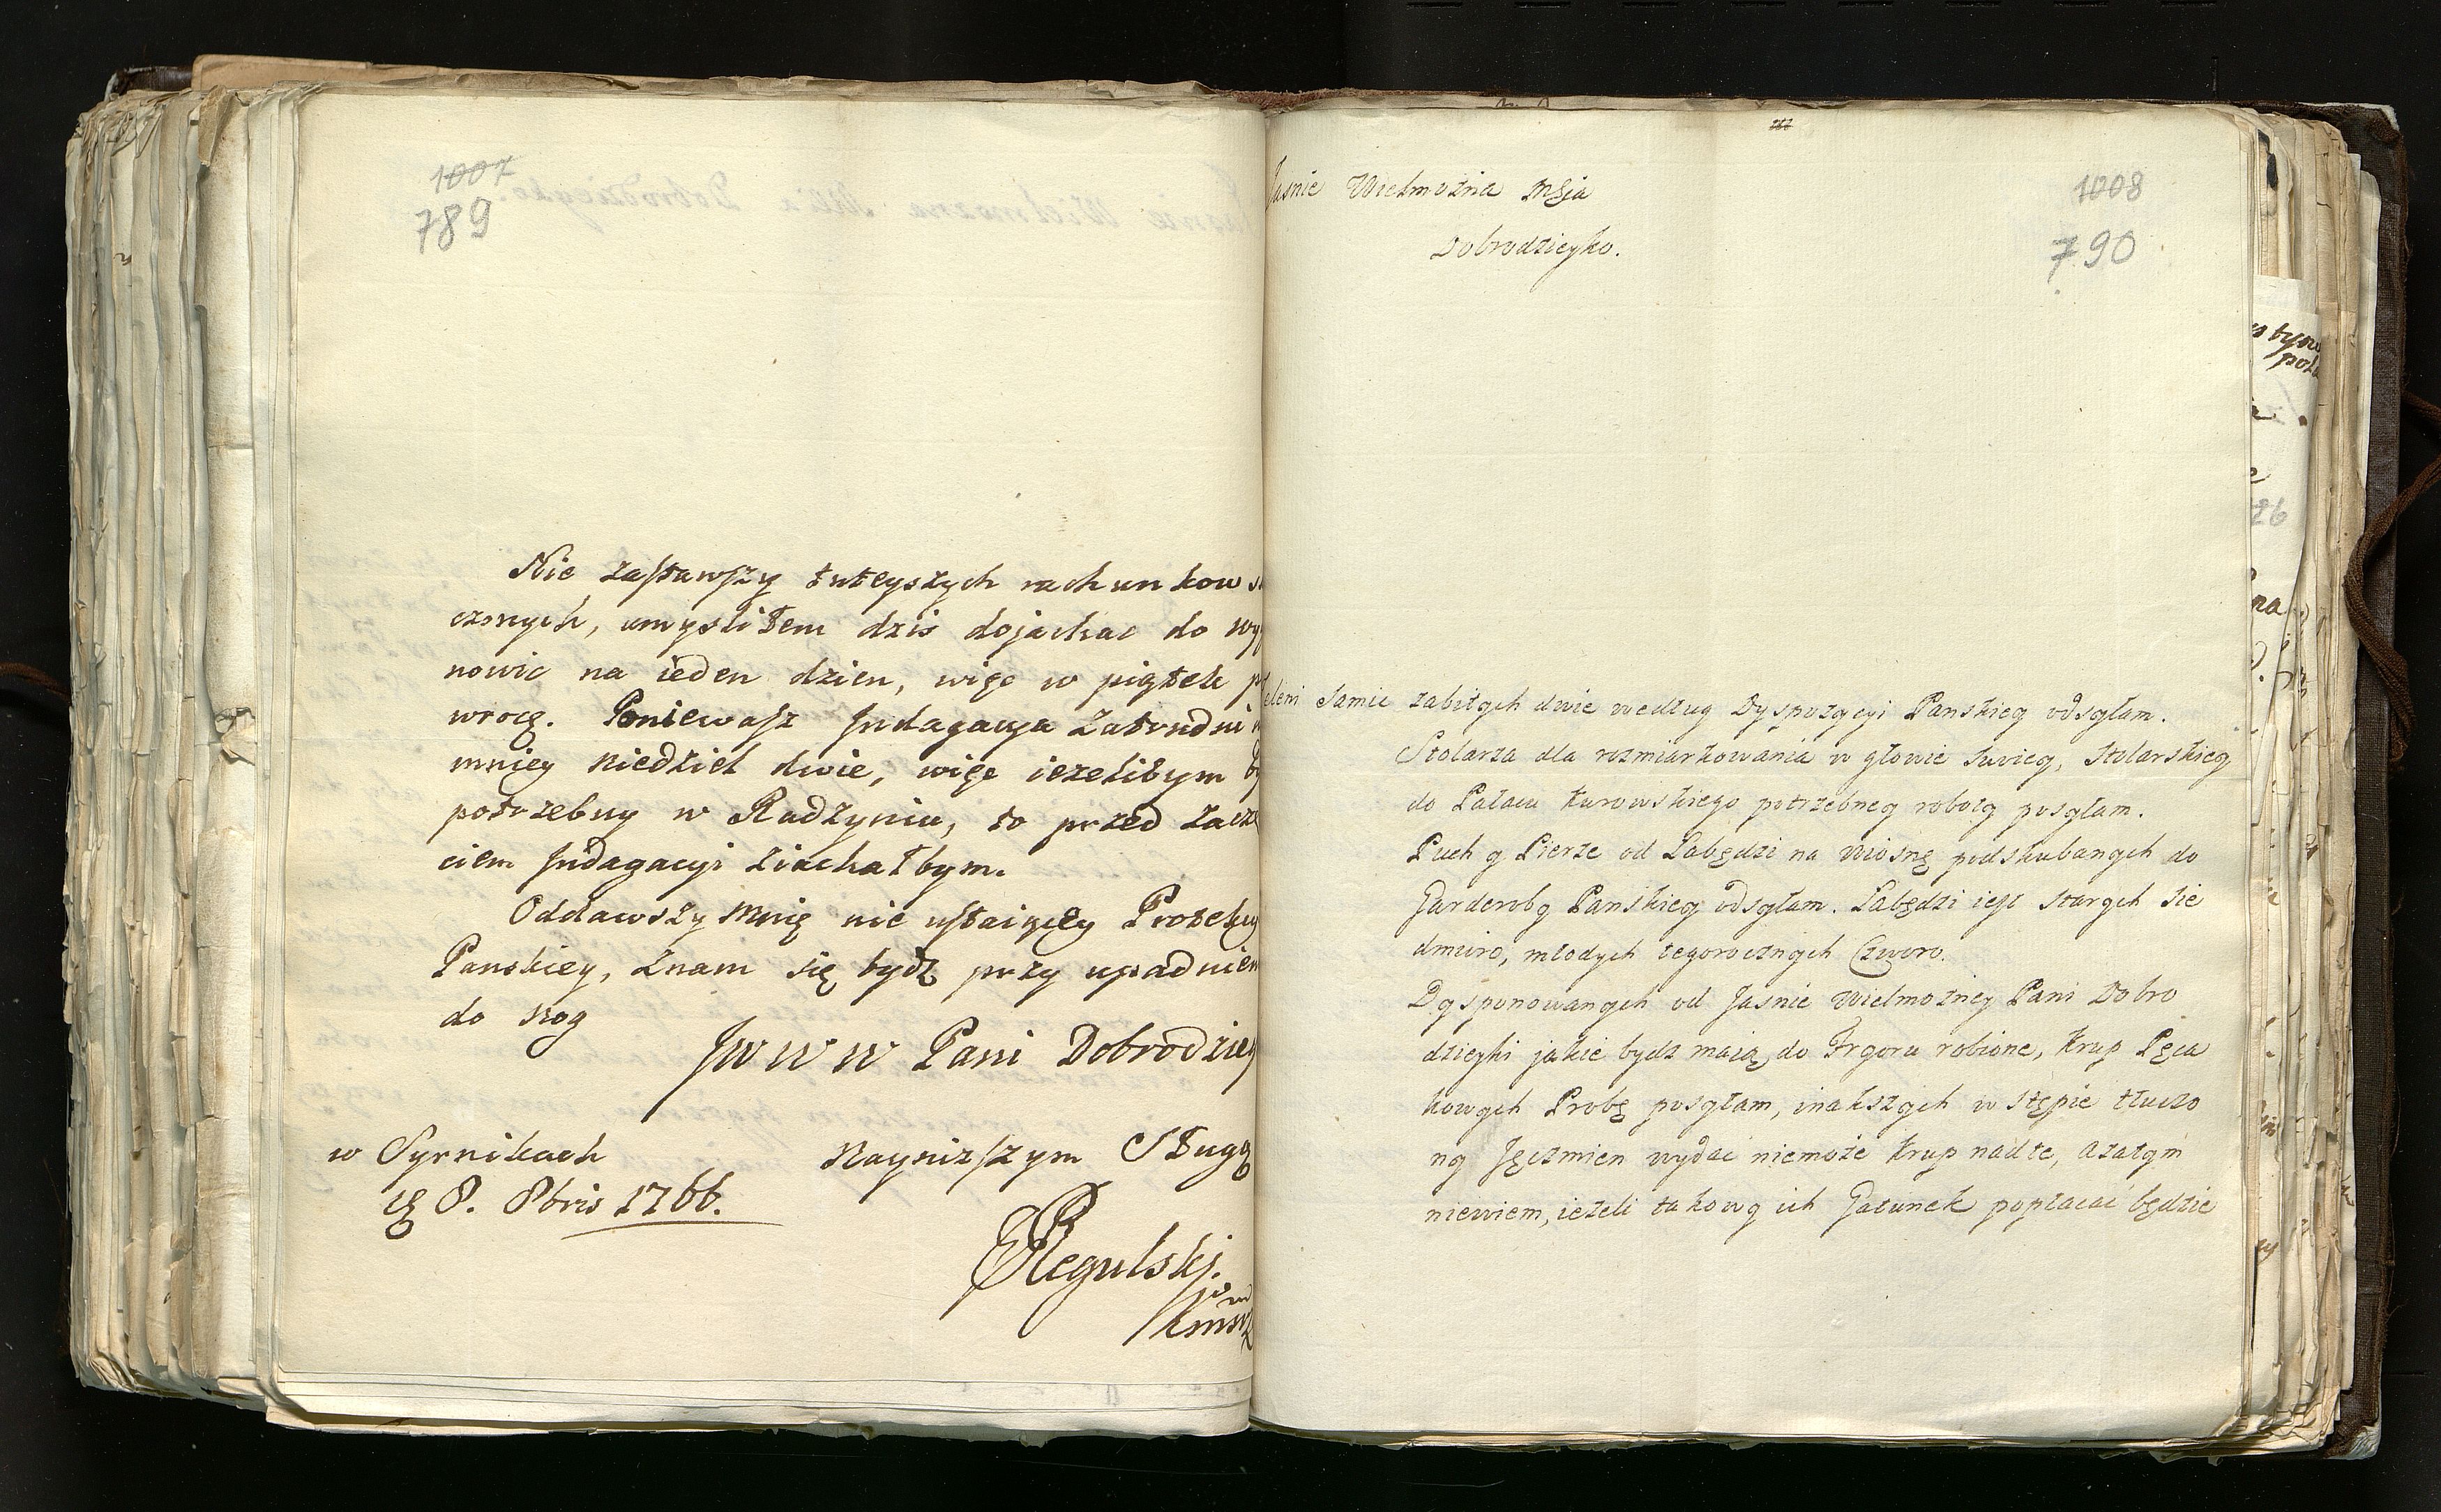 1007
789
Nie zastawszy tuteyszych rachunkow
czonych, umysliłem dzis dojachac do wy
nowic na ieden dzien, więc w piątek
wrocę. Poniewasz Indagacya zatrudni
mniey niedziel dwie, więc iezelibym
potrzebny w Radzyniu, to przed zacze
ciem Indagacyi ziachałbym.
Oddawszy mnię nie ustaiącey Protekcy
Panskiey, znam się bydz przy upadnien
do nog
JW W W Pani Dobrodziey
w Syrnikach
Nayniszszym Sługą
8. 8bris 1766.
Regulski
1008
790
Jasnie Wielmożna Mśja
Dobrodzieyko.
eleni Samic zabitych dwie według Dyspozycyi Panskiey odsyłam.
Stolarza dla rozmiarkowania w głowie swoiey, Stolarskiey
do Pałacu Kurowskiego potrzebney roboty posyłam.
Puch y Pierze od Łabędzi na Wiosnę podskubanych do
Garderoby Panskiey odsyłam. Łabędzi iest starych sie
dmioro, młodych tegorocznych Czworo.
Dysponowanych od Jasnie Wielmożney Pani Dobro
dzieyki jakie bydz maią do Fryoru robione, Krup Pęca
kowych Probę posyłam, inakszych w stępie tłuczo
ny Jęczmien wydac niemoże Krup nad te, a zatym
niewiem, ieżeli takowy ich Gatunek popłacac będzie